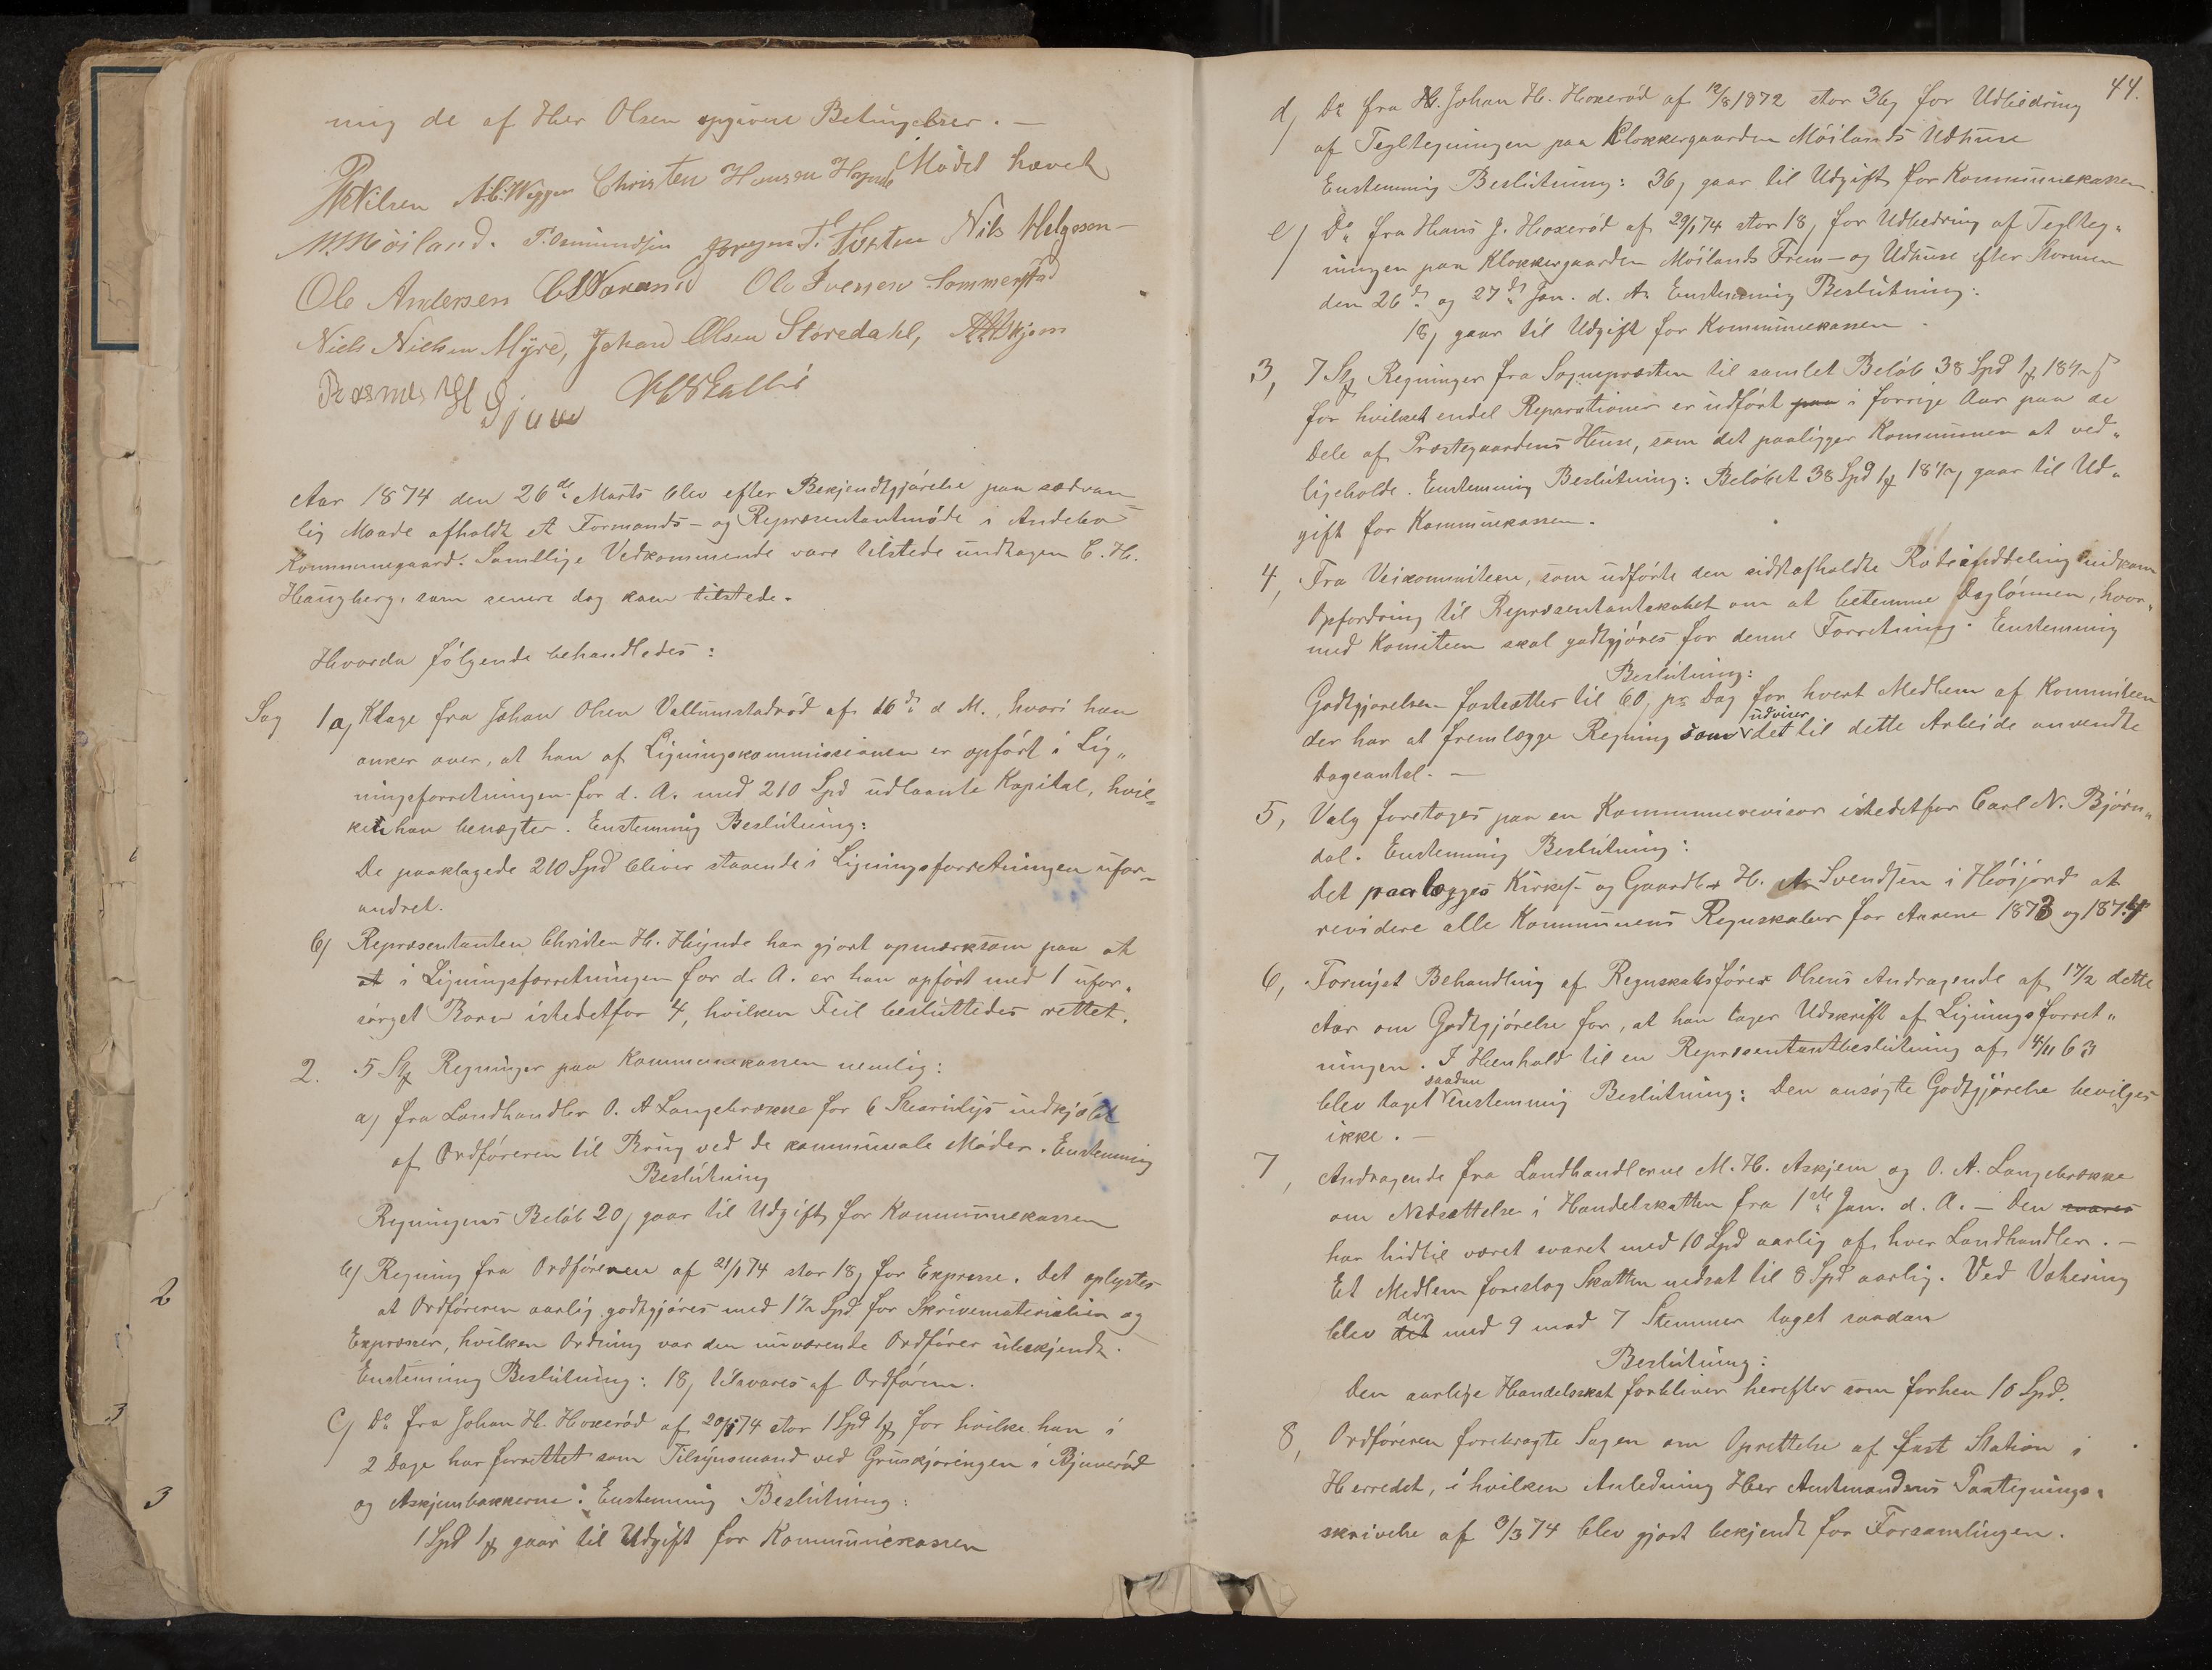 ning de af Herr Olsen opgivne Betingelser. —
Mødet hævet
Nilsen A.C. Wegger Christen Hansen Høynde
M. Møiland. T. Osmundsen Jørgen T. Nils Helgesen
Ole Andersen Ole Iversen Sommerstad
Niels Nielsen Myre, Johan Olsen Storedahl, Askjem
Rasmus
Aar 1874 den 26de Marts blev efter Bekjendtgjørelse paa sædvan-
lig Maade afholdt et Formands- og Repræsentantmøde i Andebu
Kommunegaard. Samtlige Vedkommende vare tilstede undtagen C. H.
Haugberg, som senere dog kom tilstede.
Hvorda følgende behandledes:
Sag 1 a, Klage fra Johan Olsen Vallumstadrød af 16de d M., hvori han
anker over, at han af Ligningskommissionen er opført i Lig„
ningsforretningen for d. A. med 210 Spd udlaante Kapital, hvil-
ket han benægter. Enstemmig Beslutning:
De paaklagede 210 Spd bliver staaende i Ligningsforretningen ufor-
andret.
b) Repræsentanten Christen H. Høynde har gjort opmærksom paa at
at i Ligningsforretningen for d. A. er han opført med 1 ufor„
sørget Barn istedetfor 4, hvilken Feil besluttedes rettet.
2. 5 Stk Regninger paa Kommunekassen nemlig:
a) fra Landhandler O. A Langebrække for 6 Stearinlys indkjøbt
af Ordføreren til Brug ved de kommunale Møder. Enstemmig
Beslutning
Regningens Beløb 20, gaar til Udgift for Kommunekassen
b) Regning fra Ordføreren af 21/1 74 stor 18, for Expresse. Det oplystes
at Ordføreren aarlig godtgjøres med 1½ Spd for Skrivematerialier og
Expresser, hvilken Ordning var den nuværende Ordfører ubekjendt.
Enstemmig Beslutning: 18, tilsvares af Ordføreren.
c) Do fra Johan H. Hoxerød af 20/1 74 stor 1 Spd 1 for hvilke han i
2 Dage har forrettet som Tilsynsmand ved Gruskjøringen i Bjuerød
og Askjembakkerne. Enstemmig Beslutning:
1 Spd 1 gaar til Udgift for Kommunekassen
44.
d, Do fra H. Johan H. Hoxerød af 12/8 1872 stor 36, for Udbedring
af Tegltegningen paa Klokkergaarden Møilands Udhuse
Enstemmig Beslutning: 36, gaar til Udgift for Kommunekassen.
e) Do fra Hans J. Hoxerød af 29/1 74 stor 18, for Udbedring af Tegltæg„
ningen paa Klokkergaarden Møilands Frem- og Udhuse efter Stormen
den 26de og 27de Jan. d. A. Enstemmig Beslutning:
18, gaar til Udgift for Kommunekassen.
3, 7 Stk Regninger fra Sognepræsten til samlet Beløb 38 Spd 1 18½ ß
for hvilket endel Reparationer er udført paa i forrige Aar paa de
Dele af Præstegaardens Huse, som det paaligger Kommunen at ved„
ligeholde. Enstemmig Beslutning: Beløbet 38 Spd 1 18½, gaar til Ud„
gift for Kommunekassen.
4, Fra Veikommiteen, som udførte den sidstafholdte Rodeinddeling indkom
Opfordring til Repræsentantskabet om at bestemme Daglønnen, hvor„
med Komiteen skal godtgjøres for denne Forretning. Enstemmig
Beslutning:
Godtgjørelsen fastsættes til 60, pr Dag for hvert Medlem af Kommiteen
der har at fremlægge Regning som udviser det til dette Arbeide anvendte
Dageantal. —
5, Valg foretages paa en Kommunerevisor istedetfor Carl N. Bjørn„
dal. Enstemmig Beslutning:
Det paalægges Kirkes- og Gaardbr H. A. Svendsen i Høijord at
revidere alle Kommunens Regnskaber for Aarene 1873 og 1874
6, Fornyet Behandling af Regnskabsfører Olsens Andragende af 17/2 dette
Aar om Godtgjørelse for, at han tager Udskrift af Ligningsforret„
ningen. I Henhold til en Repræsentantbeslutning af 4/11 63
blev taget saadan enstemmig Beslutning: Den ansøgte Godtgjørelse bevilges
ikke. —
7, Andragende fra Landhandlerne M. H. Askjem og O. A. Langebrække
om Nedsættelse i Handelskatten fra 1ste Jan. d. A. — Den svares
har hidtil været svaret med 10 Spd aarlig af hver Landhandler. —
Et Medlem foreslog Skatten nedsat til 8 Spd aarlig. Ved Votering
blev det der med 9 mod 7 Stemmer taget saadan
Beslutning:
Den aarlige Handelsskat forbliver herefter som forhen 10 Spd.
8, Ordføreren forebragte Sagen om Oprettelse af fast Station i
Herredet, i hvilken Anledning Herr Amtmandens Paategnings„
skrivelse af 9/3 74 blev gjort bekjendt for Forsamlingen.
2
3
3